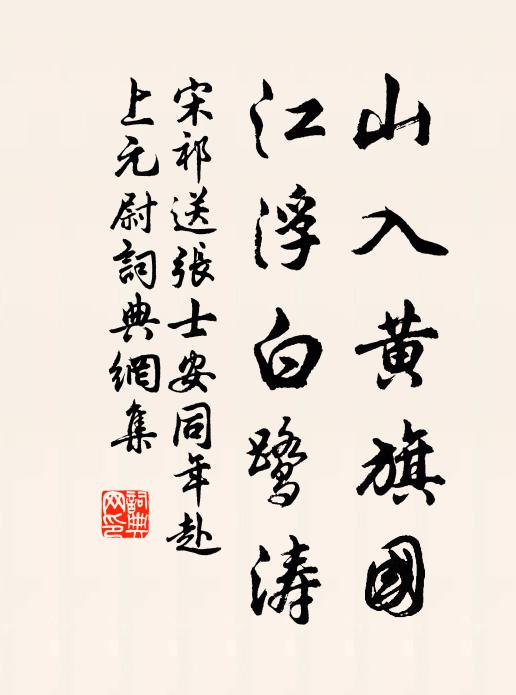 山入黄旗國
江浮白鹭涛
宋祁送張士安同年赴
上元尉詞典網集
詞典
网印